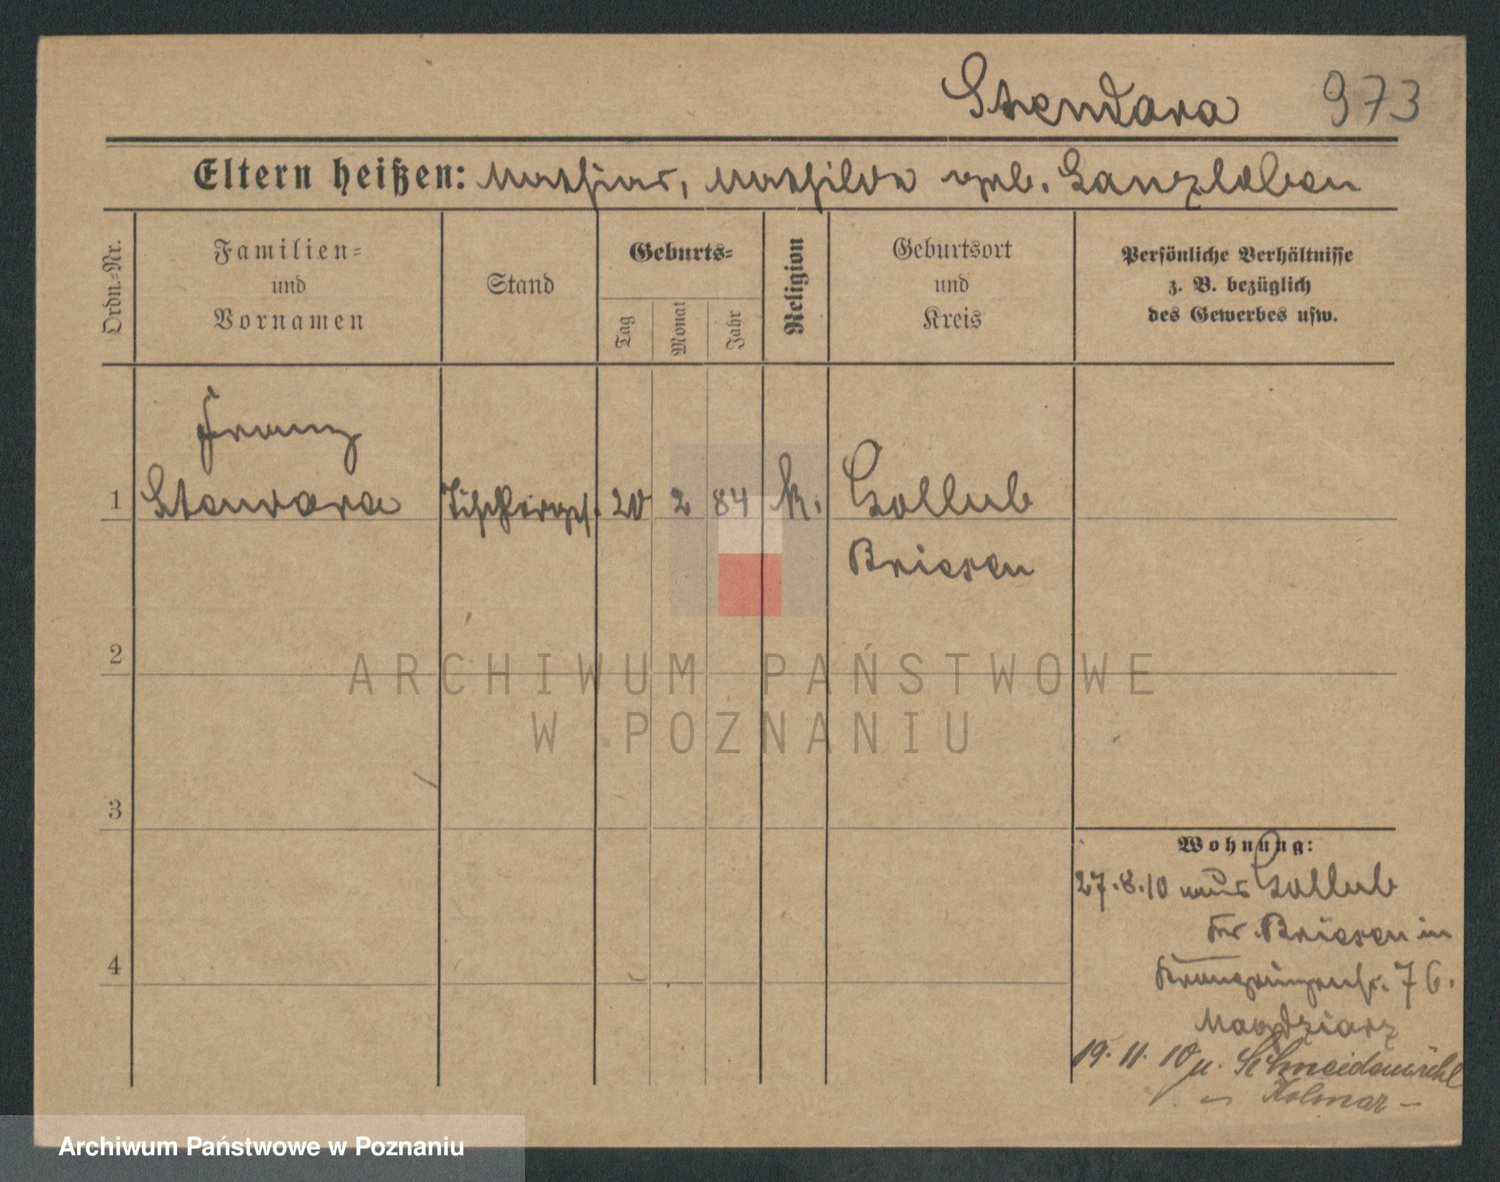 Stendara 973
Eltern heißen: Mathias, Mathilde geb. Ganzleben
Ordn.=Nr.
Familien=
und
Vornamen
Stand
Geburts=
Tag
Monat
Jahr
Religion
Geburtsort
und
Kreis
Persönliche Verhältnisse
z. B. bezüglich
des Gewerbes usw.
Franz
1 Stendara Tischlerges. 20 2 84 k. Gollub
Briesen
2
ARCHIWUM PAŃSTWOWE
W POZNANIU
3
Wohnung:
27.8.10 aus Gollub
Kr. Briesen in
Kronprinzenstr. 76.
19.11.10 n. Schneidemühl
Kolmar
4
Archiwum Państwowe w Poznaniu